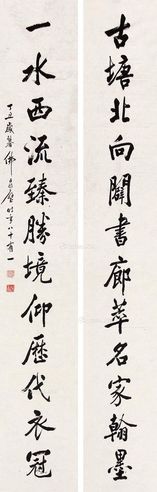 古塘北向闢書廊萃名家翰墨
一水西流臻勝境仰歷代衣冠
丁丑歲暮佛庵時年八十有一